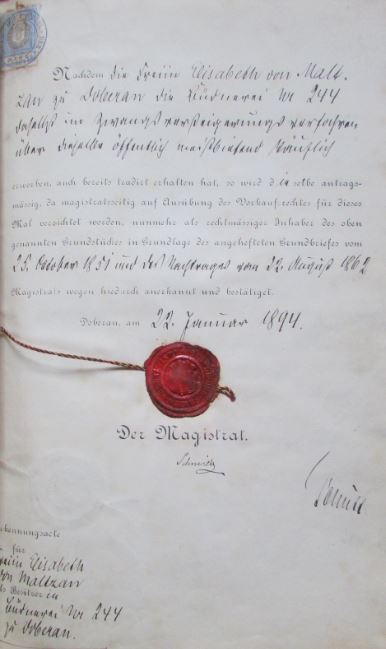 Nachdem die Freiin Elisabeth von Malt-
zan zu Doberan die Büdnerei Nr 244
daselbst im Zwangsversteigerungsverfahren
über dieselbe öffentlich meistbietend käuflich
erworben, auch bereits tradirt erhalten hat, so wird dieselbe antrags-
mässig, da magistratsseitig auf Ausübung des Vorkaufrechtes für dieses
Mal verzichtet worden, nunmehr als rechtmässiger Inhaber des oben
genannten Grundstückes in Grundlage des angehefteten Grundbriefes vom
25. October 1851 und des Nachtrages vom 22. August 1862
Magistrats wegen hiedurch anerkannt und bestätiget.
Doberan, am 22. Januar 1894.
Der Magistrat.
rkennungsacte
für
Freiin Elisabeth
von Maltzan
ls Besitzerin
Büdnerei Nr 244
zu Doberan.